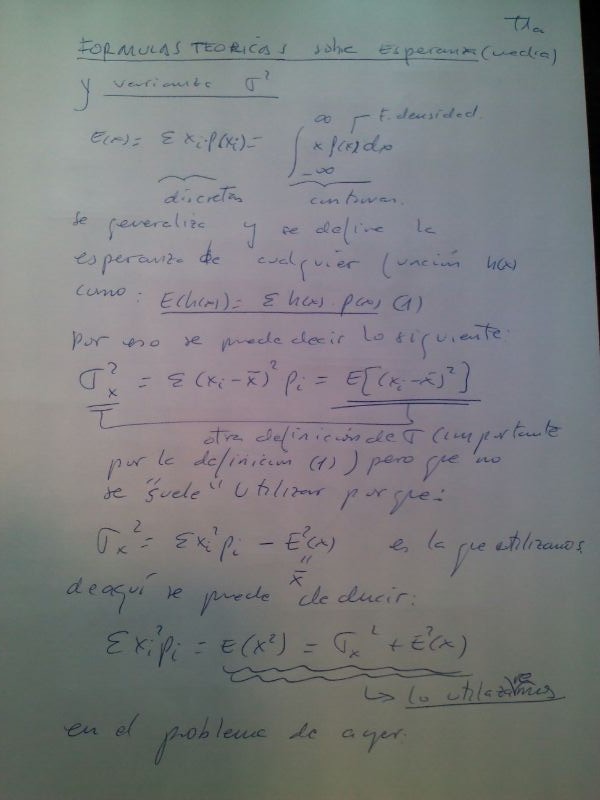 T1a
FORMULAS TEORICAS sobre Esperanza (media)
y varianza σ²
E(x) = Σ xi·p(xi) = ∫_{-∞}^{∞} x f(x) dx
F. densidad.
discretas continuas.
se generaliza y se define la
esperanza de cualquier función h(x)
como: E(h(x)) = Σ h(x)·p(x) (1)
por eso se puede decir lo siguiente:
σx² = Σ (xi - x̄)² pi = E[(xi - x̄)²]
otra definición de σ (importante
por la definicion (1)) pero que no
se "suele" utilizar porque:
σx² = Σ xi² pi - E²(x) es la que utilizamos.
" x̄
de aquí se puede deducir:
Σ xi² pi = E(x²) = σx² + E²(x)
↳ lo utilizaremos
en el problema de ayer.